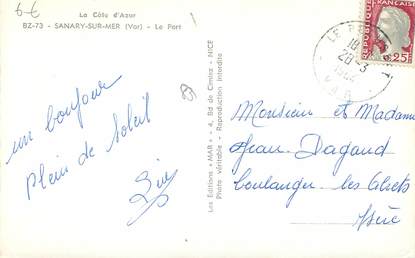 6 €
La Côte d'Azur
BZ-73 - SANARY-SUR-MER (Var) - Le Port
un bonjour
plein de Soleil
Les Editions "MAR" - 4, Bd de Cimiez - NICE
Photo véritable - Reproduction interdite
REPUBLIQUE FRANCAISE
0,25F
18
20-3
VAR
Monsieur et Madame
Jean Dagaud
boulanger les Abrets
Isère